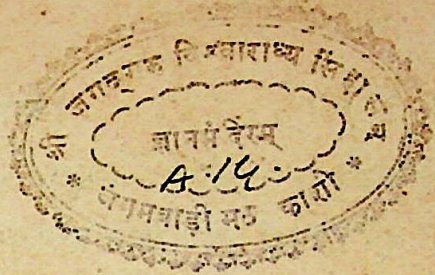 श्री जगद्गुरु विश्वाराध्य
ज्ञानमंदिरम्
A.14.
* जंगमवाड़ी मठ काशी *